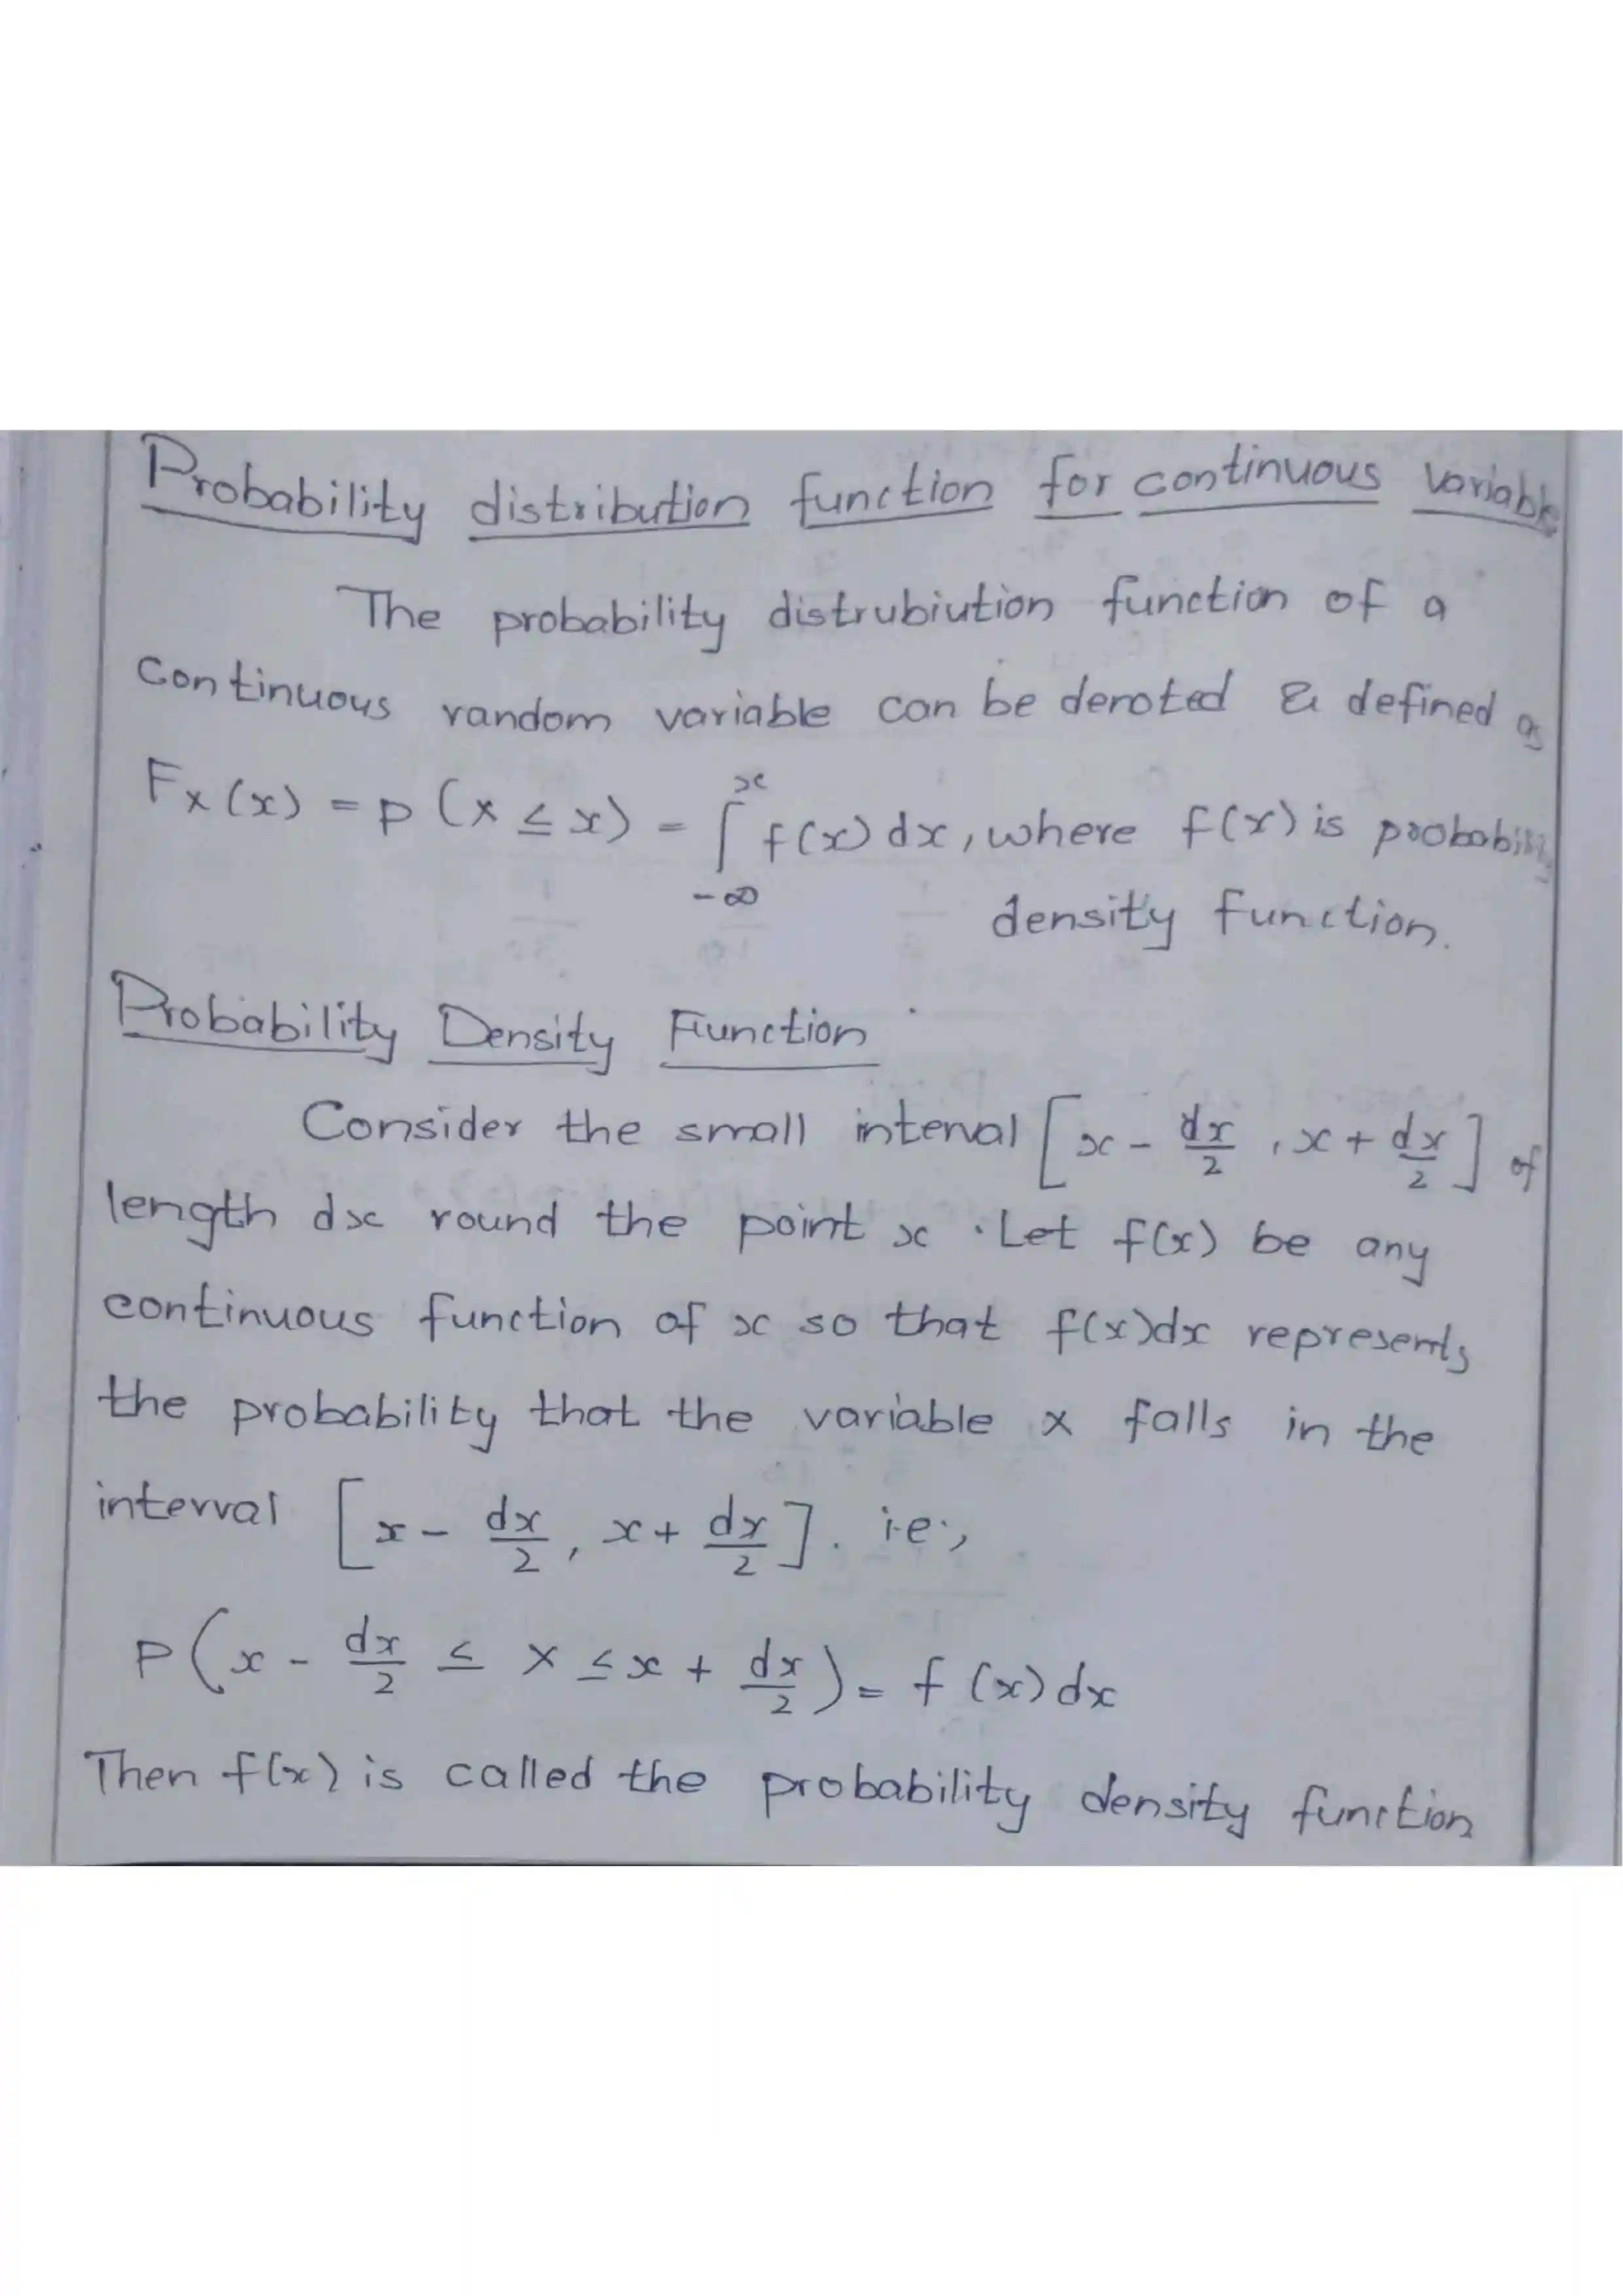 Probability distribution function for continuous Variable
The probability distrubiution function of a
Continuous random variable can be denoted & defined as
Fx(x) = p (x ≤ x) = ∫_{-∞}^{x} f(x) dx, where f(x) is probability
density function.
Probability Density Function
Consider the small interval [x - dx/2, x + dx/2] of
length dx round the point x. Let f(x) be any
continuous function of x so that f(x)dx represents
the probability that the variable x falls in the
interval [x - dx/2, x + dx/2]. i.e.,
P(x - dx/2 ≤ X ≤ x + dx/2) = f(x)dx
Then f(x) is called the probability density function